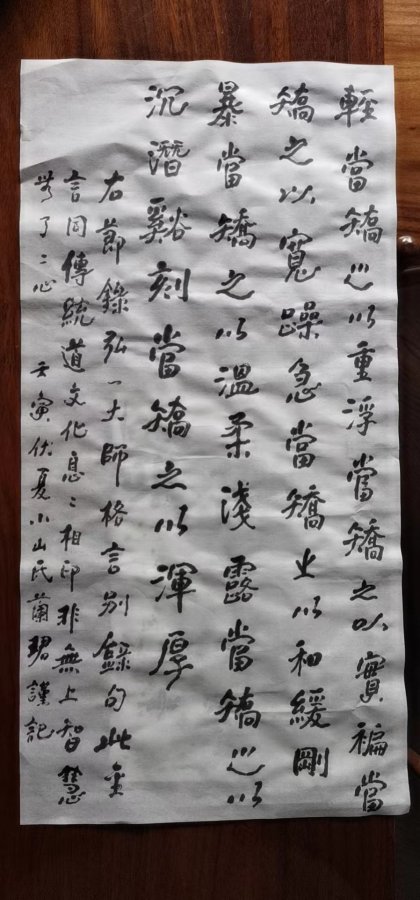 輕當矯之以重浮當矯之以實褊當
矯之以寬躁急當矯之以和緩剛
暴當矯之以溫柔淺露當矯之以
沉潛谿刻當矯之以渾厚
右節錄弘一大師格言別錄句此金
言同傳統道文化息々相印非無上智慧
者了々心
壬寅伏夏小山氏蘭珺謹記